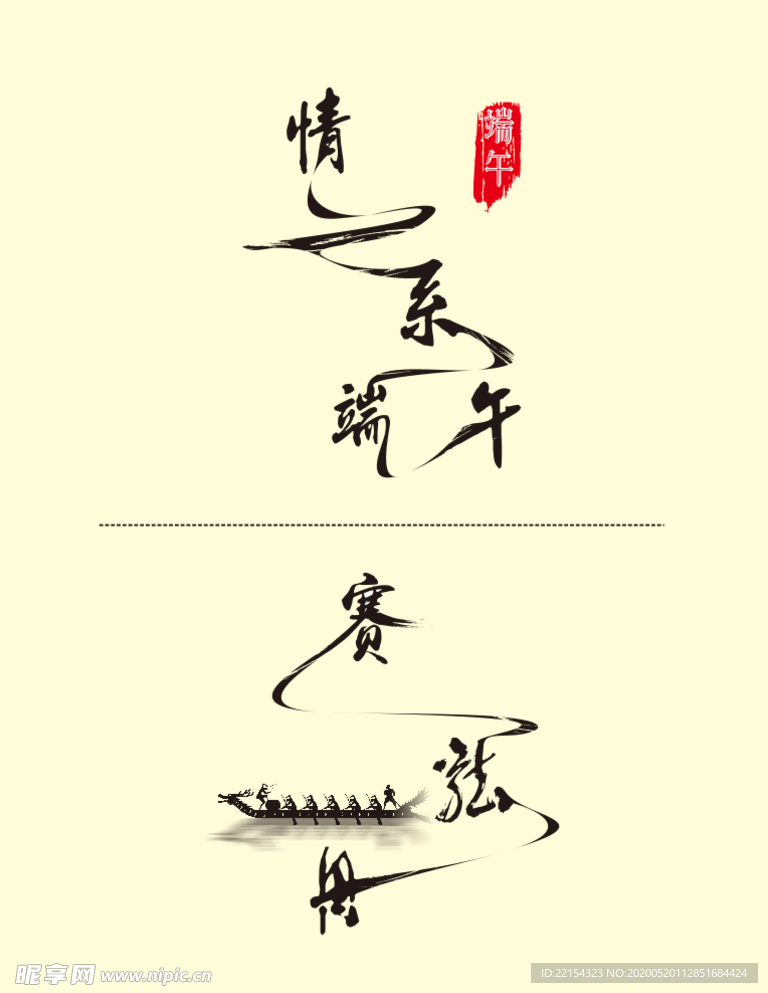 情
一
系
端午
端午
赛
龙
舟
昵享网 www.nipic.cn
ID:22154323 NO:20200520112851684424